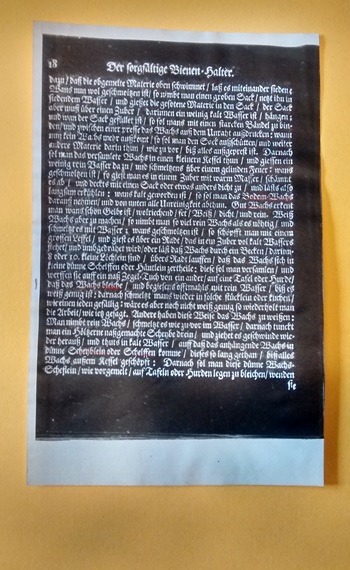 18
Der sorgfältige Bienen-Halter.
dazu / daß die obgemelte Materie oben schwimmet / laß es miteinander sieden:
Wans nun wol geschmeltzen ist / so nimbt man einen groben Sack / netzt ihn in
siedendem Wasser / und giesset die gesotene Materie in den Sack / der Sack
aber muß über einen Zuber / darinnen ein wenig kalt Wasser ist / hangen:
und wan der Sack gefüllet ist / so sol mans mit einen starcken Bändel zu bin-
den / und zwischen einer presse das Wachs auß dem Unraht außdrucken: wann
nun kein Wachs mehr auskomt / so sol man den Sack außschütten / und weiter
andere Materie darin thun / wie zu vor / biß alles außgeprest ist. Darnach
sol man das versamlete Wachs in einen kleinern Kessel thun / und giessen ein
wenig rein Wasser dazu / und schmeltzens über einem gelinden Feuer: wans
geschmeltzen ist / so giest man es in einen Zuber mit warm Wasser / schäumt
es ab / und deckts mit einen Sack oder etwas anders dicht zu / und läst es also
langsam erkühlen: wans kalt geworden ist / so sol man das Boden-Wachs
davon nehmen / und von unten alle Unreinigkeit abthun. Gut Wachs erkent
man wans schön Gelbe ist / wolriechend / fet / Weiß / dicht / und rein. Weiß
Wachs aber zu machen / so nimbt man so viel rein Wachs als es nöhtig / und
schmeltzt es mit Wasser: wans geschmeltzen ist / so schöpfft man mit einem
grossen Leffel / und giest es über ein Rade / das in eine Zuber vol kalt Wassers
stehet / und umbgedrehet wird / oder läst daß Wachs durch ein Becken / darinn
8 oder 10. kleine Löchlein sind / übers Radt lauffen / daß das Wachs sich in
kleine dünne Schelffen oder Häutlein zertheile: diese sol man versamlen / und
werffen sie auff ein naß Segel-Tuch von ein ander / auf eine Tafel oder Hurde /
daß das Wachs bleiche / und begiessets offtmahls mit rein Wasser / biß es
weiß genug ist: darnach schmeltzt mans wieder in solche stücklein oder kuchen /
wie einen jeden gefält / wo es noch nicht weiß genug so wiederholt man
die Arbeit / wie ietz gesagt. Andere haben diese Weise das Wachs zu weissen:
Man nimbt rein Wachs / schmeltzt es wie zu vor im Wasser / darnach tunckt
man ein Hölzern naßgemachte Scheibe drein / und ziehet es geschwinde wie-
der herauß / und thuts in kalt Wasser / auff daß das anhängende Wachs in
dünne Scheiblein oder Schelffen komme / dieses so lang gethan / biß alles
Wachs außem Kessel geschöpft: Darnach sol man diese dünne Wachs-
Scheflein / wie vorgemelt / auf Tafeln oder Hurden legen zu bleichen / wenden
sie